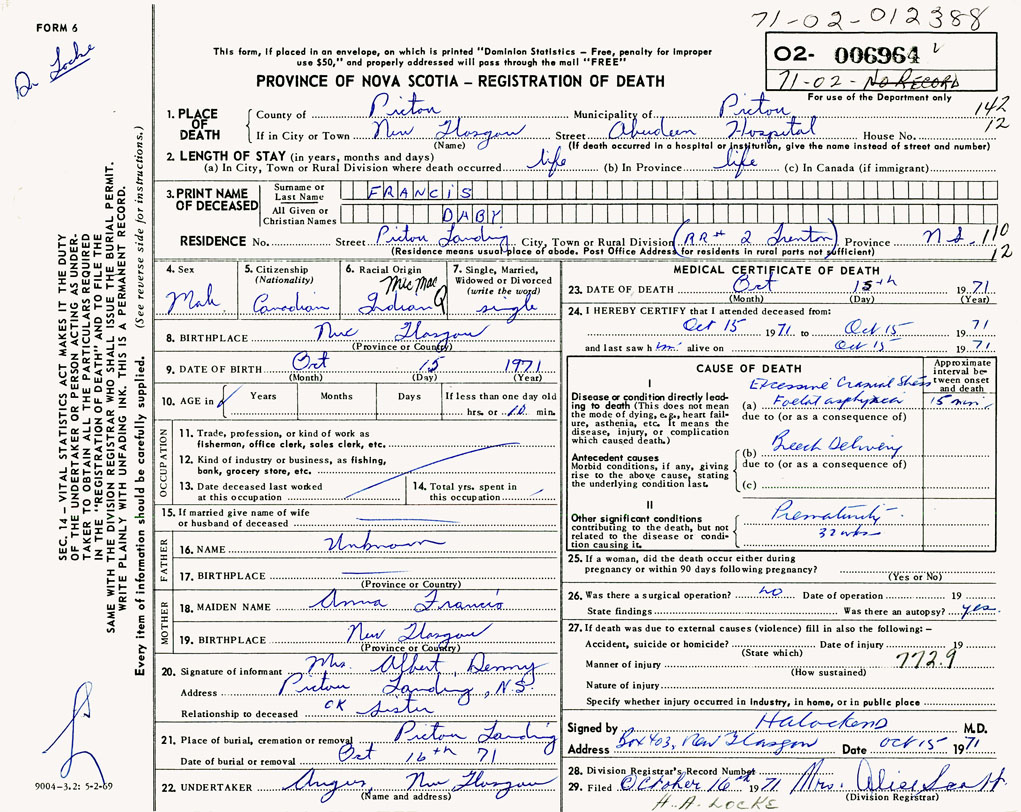 FORM 6
71-02-012388
Dr Locke
This form, if placed in an envelope, on which is printed "Dominion Statistics – Free, penalty for improper
use $50," and properly addressed will pass through the mail "FREE"
02- 006964
71-02- NO RECORD
For use of the Department only
PROVINCE OF NOVA SCOTIA – REGISTRATION OF DEATH
1. PLACE OF DEATH
County of Pictou Municipality of Pictou 142
If in City or Town New Glasgow Street Aberdeen Hospital House No. 12
(Name) (If death occurred in a hospital or institution, give the name instead of street and number)
2. LENGTH OF STAY (in years, months and days)
(a) In City, Town or Rural Division where death occurred life (b) In Province life (c) In Canada (if immigrant)
3. PRINT NAME OF DECEASED
Surname or Last Name FRANCIS
All Given or Christian Names BABY
RESIDENCE No. Street Pictou Landing City, Town or Rural Division (RR# 2 Trenton) Province N.S. 110
(Residence means usual place of abode. Post Office Address for residents in rural parts not sufficient) 12
4. Sex
Male
5. Citizenship
(Nationality)
Canadian
6. Racial Origin
Mic Mac
Indian
7. Single, Married,
Widowed or Divorced
(write the word)
single
8. BIRTHPLACE New Glasgow
(Province or Country)
9. DATE OF BIRTH Oct 15 1971
(Month) (Day) (Year)
10. AGE in Years Months Days If less than one day old
hrs. or 10 min.
OCCUPATION
11. Trade, profession, or kind of work as
fisherman, office clerk, sales clerk, etc.
12. Kind of industry or business, as fishing,
bank, grocery store, etc.
13. Date deceased last worked
at this occupation
14. Total yrs. spent in
this occupation
15. If married give name of wife
or husband of deceased
FATHER
16. NAME Unknown
17. BIRTHPLACE
(Province or Country)
MOTHER
18. MAIDEN NAME Anna Francis
19. BIRTHPLACE New Glasgow
(Province or Country)
20. Signature of informant Mrs. Albert Denny
Address Pictou Landing, N.S.
Relationship to deceased OK Sister
21. Place of burial, cremation or removal Pictou Landing
Date of burial or removal Oct 16th 71
22. UNDERTAKER Angus, New Glasgow
(Name and address)
MEDICAL CERTIFICATE OF DEATH
23. DATE OF DEATH Oct 15th 1971
(Month) (Day) (Year)
24. I HEREBY CERTIFY that I attended deceased from:
Oct 15 1971 to Oct 15 1971
and last saw him alive on Oct 15 1971
CAUSE OF DEATH
Approximate
interval between onset
and death
I
Disease or condition directly leading to death (This does not
mean the mode of dying, e.g., heart failure, asthenia, etc. It means the
disease, injury, or complication
which caused death.)
Excessive Cranial Stress
(a) Foetal asphyxia 15 min.
due to (or as a consequence of)
Antecedent causes
Morbid conditions, if any, giving
rise to the above cause, stating
the underlying condition last.
(b) Breech Delivery
due to (or as a consequence of)
(c)
II
Other significant conditions
contributing to the death, but not
related to the disease or condition causing it.
Prematurity
32 wks
25. If a woman, did the death occur either during
pregnancy or within 90 days following pregnancy?
(Yes or No)
26. Was there a surgical operation? no Date of operation 19
State findings Was there an autopsy? yes.
27. If death was due to external causes (violence) fill in also the following: –
Accident, suicide or homicide? Date of injury 19
(State which)
Manner of injury 772.9
(How sustained)
Nature of injury
Specify whether injury occurred in industry, in home, or in public place
Signed by M.D.
Address Box 403, New Glasgow Date Oct 15 1971
28. Division Registrar's Record Number
29. Filed October 16th 1971 Mrs. Alice Scott
(Division Registrar)
H.A. LOCKE
SEC. 14 – VITAL STATISTICS ACT MAKES IT THE DUTY
OF THE UNDERTAKER OR PERSON ACTING AS UNDERTAKER TO OBTAIN ALL THE PARTICULARS REQUIRED
IN THE "REGISTRATION OF DEATH" AND TO FILE THE
SAME WITH THE DIVISION REGISTRAR WHO SHALL ISSUE THE BURIAL PERMIT.
WRITE PLAINLY WITH UNFADING INK. THIS IS A PERMANENT RECORD.
Every item of information should be carefully supplied. (See reverse side for instructions.)
9004-3.2: 5-2-69